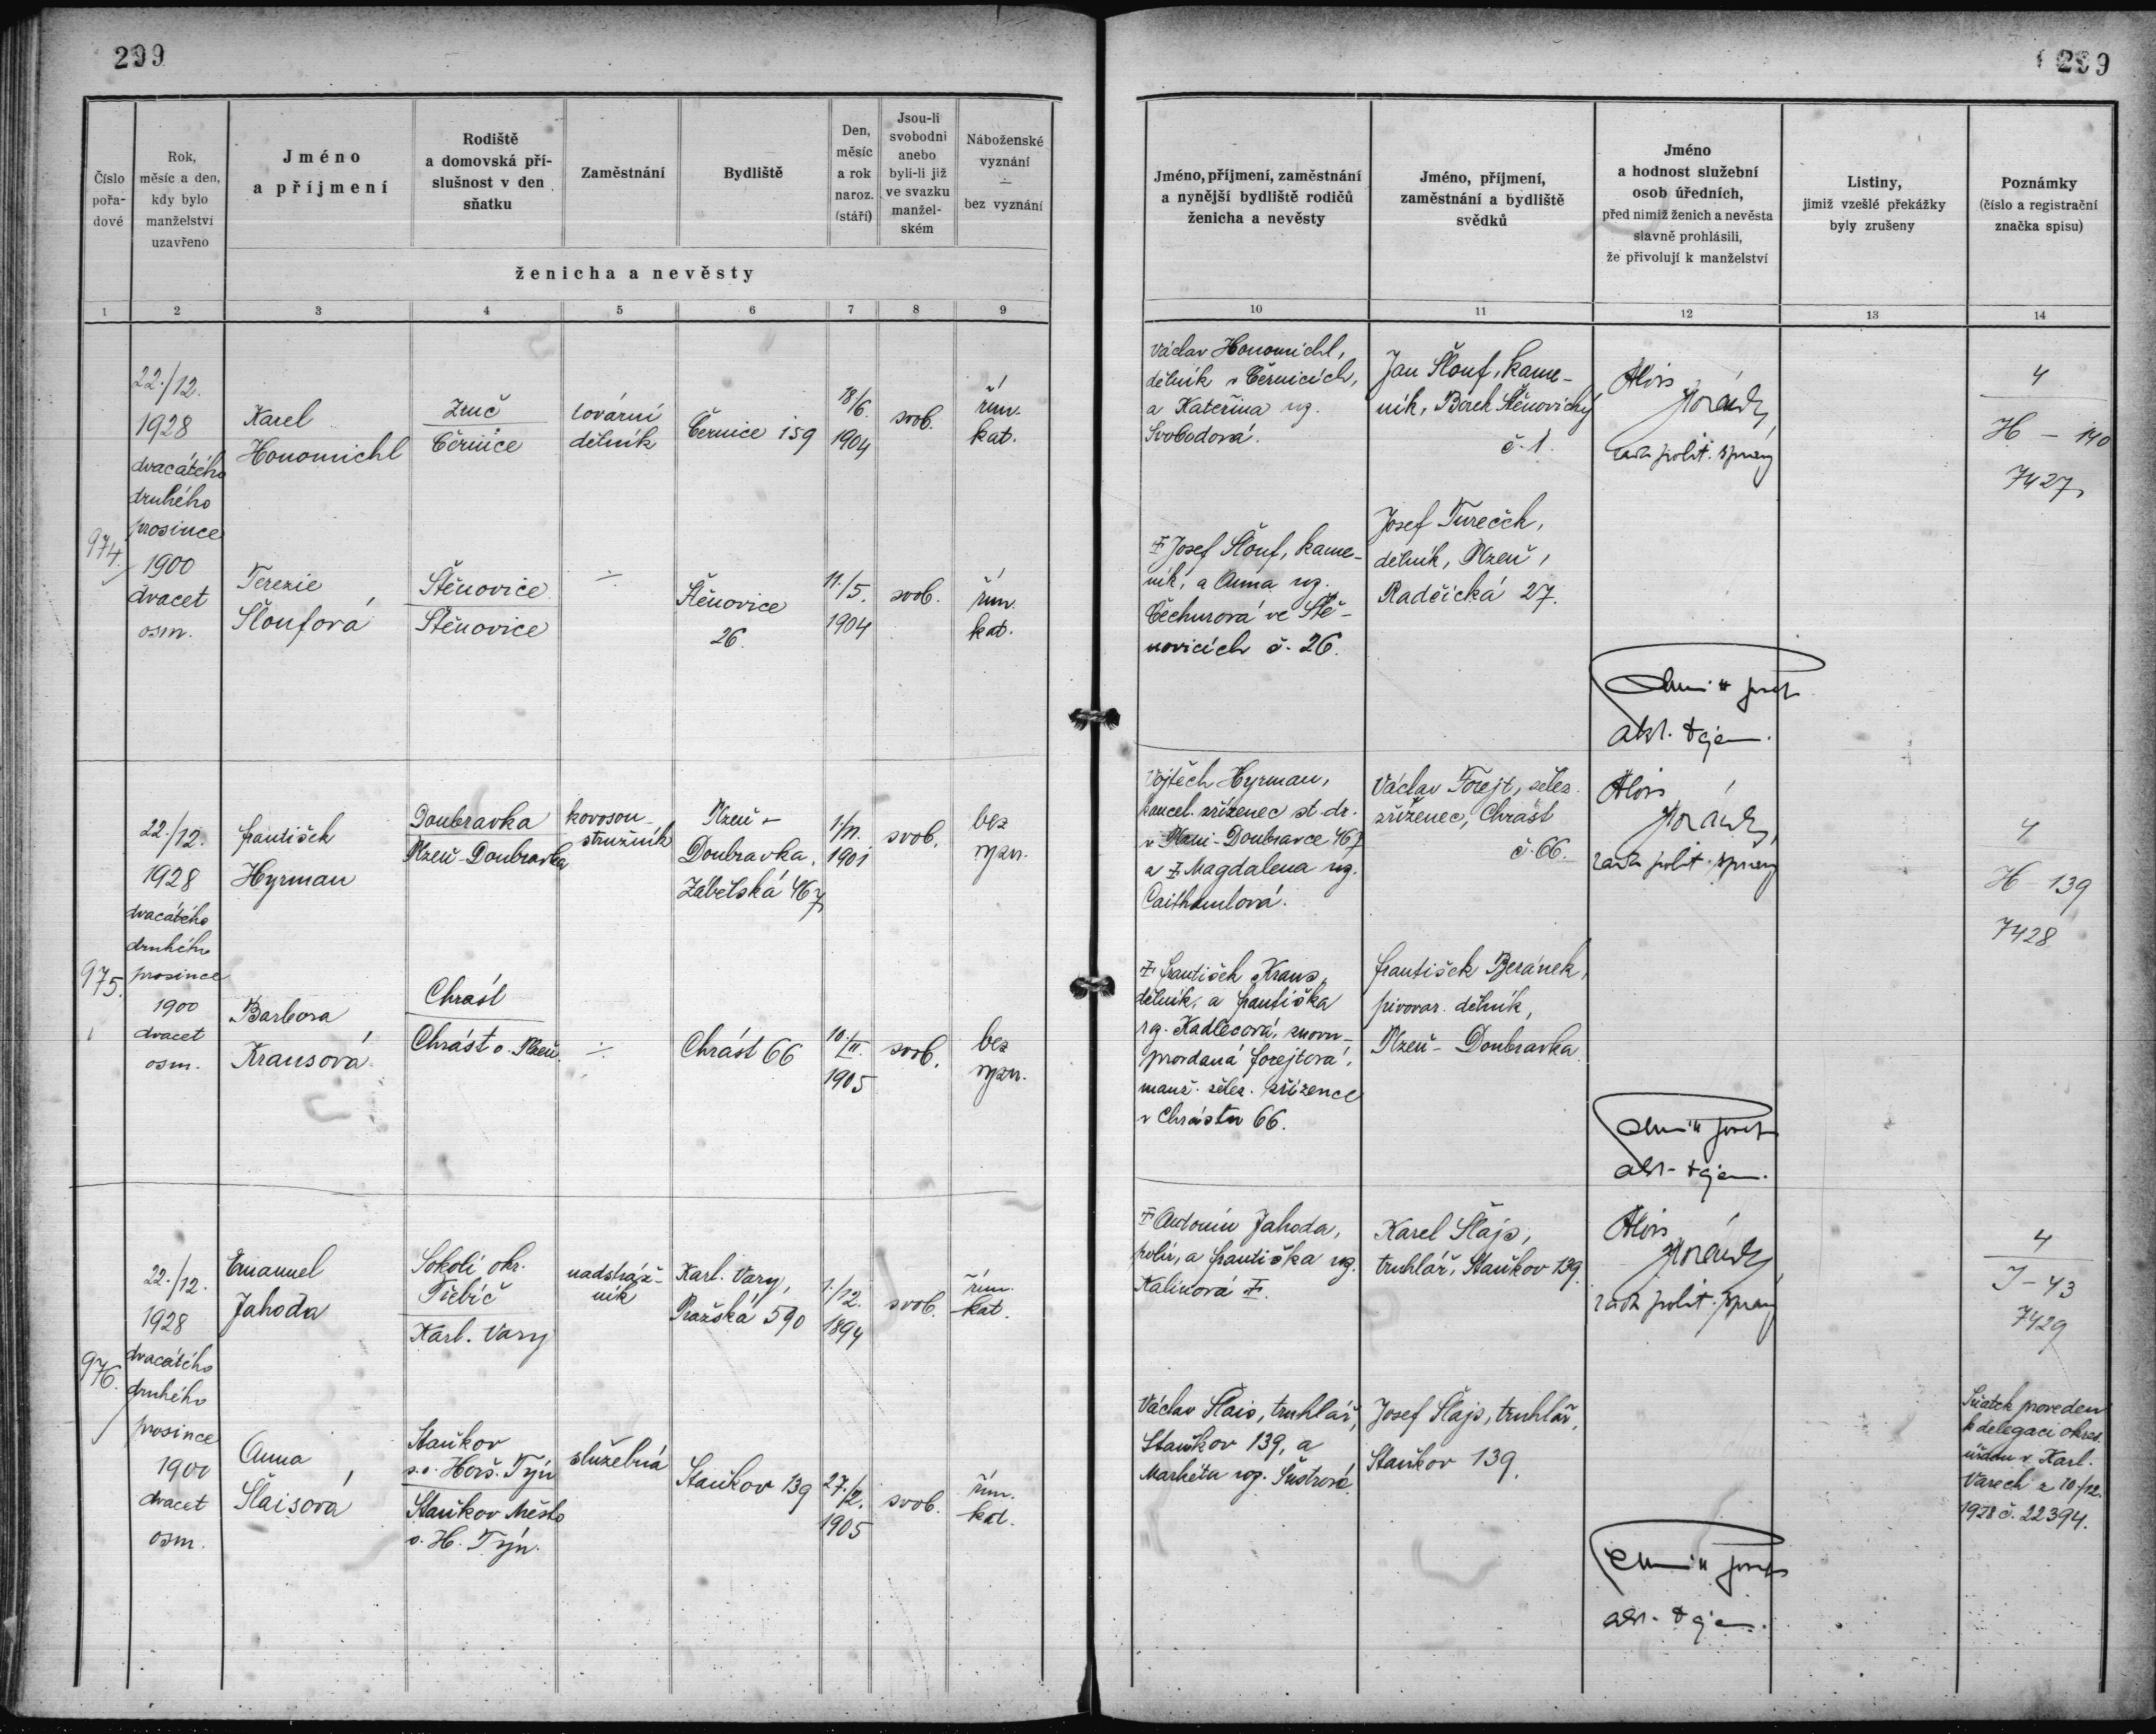 299
299
Číslo pořa-dové
Rok, měsíc a den, kdy bylo manželství uzavřeno
Jméno a příjmení
Rodiště a domovská pří-slušnost v den sňatku
Zaměstnání
Bydliště
Den, měsíc a rok naroz. (stáří)
Jsou-li svobodni anebo byli-li již ve svazku manžel-ském
Náboženské vyznání — bez vyznání
ženicha a nevěsty
Jméno, příjmení, zaměstnání a nynější bydliště rodičů ženicha a nevěsty
Jméno, příjmení, zaměstnání a bydliště svědků
Jméno a hodnost služební osob úředních, před nimiž ženich a nevěsta slavně prohlásili, že přivolují k manželství
Listiny, jimiž vzešlé překážky byly zrušeny
Poznámky (číslo a registrační značka spisu)
1 2 3 4 5 6 7 8 9 10 11 12 13 14
974.
22./12.
1928
dvacátého
druhého
prosince
1900
dvacet
osm.
Karel
Honomichl
Zruč
Černice
tovární
dělník
Černice 159
18/6.
1904
svob.
řím.
kat.
Terezie
Šloufová
Štěnovice
Štěnovice
÷
Štěnovice
26.
11./5.
1904
svob.
řím.
kat.
Václav Honomichl,
dělník v Černicích,
a Kateřina roz.
Svobodová.
Jan Šlouf, kame-
ník, Borek Štěnovický
č. 1.
Alois
rada polit. správy
4
H - 140
7427
Josef Šlouf, kame-
ník, a Anna roz.
Čechurová ve Ště-
novicích č. 26.
Josef Tureček,
dělník, Plzeň,
Radčická 27.
975.
22./12.
1928
dvacátého
druhého
prosince
1900
dvacet
osm.
František
Hyrman
Doubravka
Plzeň-Doubravka
kovosou-
stružník
Plzeň -
Doubravka,
Zábělská 467
1/11.
1901
svob.
bez
vyzn.
Barbora
Krausová
Chrást
Chrást o. Plzeň
÷
Chrást 66
10./III.
1905
svob.
bez
vyzn.
Vojtěch Hyrman,
kancel. zřízenec st. dr.
v Plzni-Doubravce 467
a Magdalena roz.
Caithamlová.
Václav Forejt, želez.
zřízenec, Chrást
č. 66.
Alois
rada polit. správy
4
H - 139
7428
František Kraus,
dělník, a Františka
roz. Kadlecová, znovu-
provdaná Forejtová,
manž. želez. zřízence
v Chrástu 66.
František Beránek,
pivovar. dělník,
Plzeň - Doubravka.
976.
22./12.
1928
dvacátého
druhého
prosince
1900
dvacet
osm.
Emanuel
Jahoda
Sokolí okr.
Třebíč
Karl. Vary
nadstráž-
ník
Karl. Vary,
Pražská 590
1./12.
1894
svob.
řím.
kat.
Anna
Šlaisová
Staňkov
s.o. Horš. Týn
Staňkov Město
o. H. Týn.
služebná
Staňkov 139
27./2.
1905
svob.
řím.
kat.
Antonín Jahoda,
polír, a Františka roz.
Kalinová
Karel Šlajs,
truhlář, Staňkov 139.
Alois
rada polit. správy
4
J - 43
7429
Václav Šlais, truhlář,
Staňkov 139, a
Markéta roz. Šustrová.
Josef Šlajs, truhlář,
Staňkov 139.
Sňatek proveden
k delegaci okres.
úřadu v Karl.
Varech z 10./12.
1928 č. 22394.